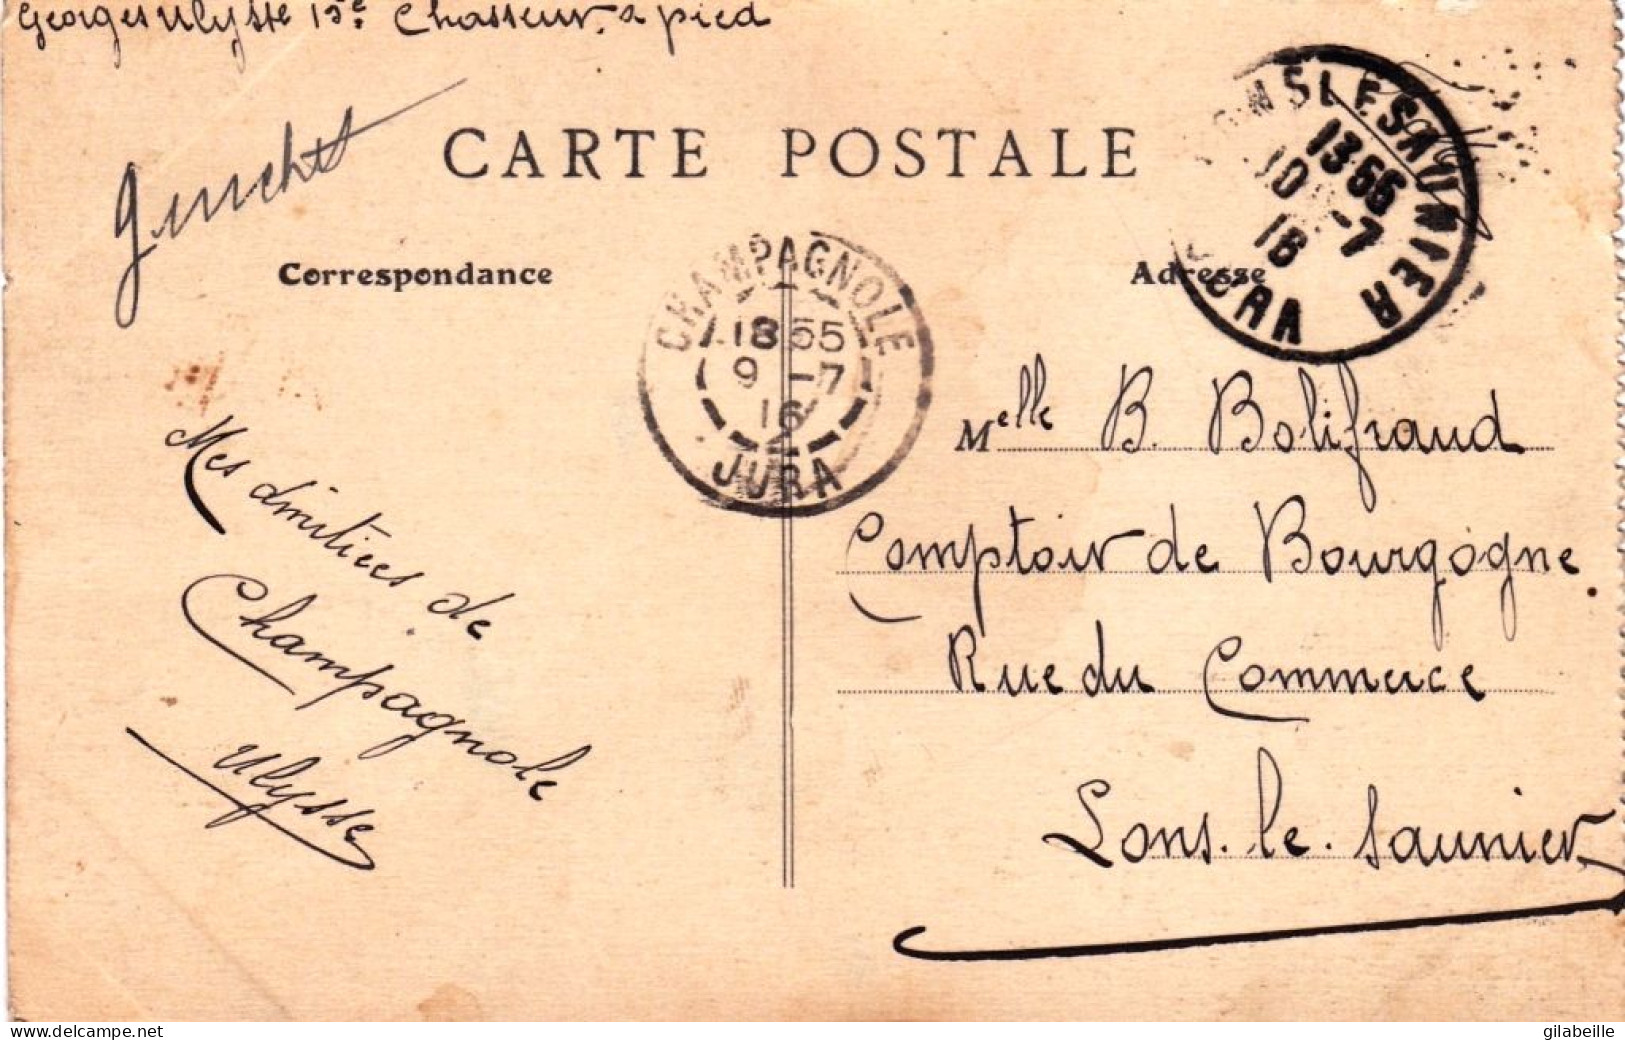 Georges Ulysse 15e Chasseur à pied
CARTE POSTALE
Correspondance
Adresse
CHAMPAGNOLE
1855
9 -7
16
JURA
LONS LE SAUNIER
1366
10 -7
16
JURA
Mes amitiées de
Champagnole
Ulysse
Melle B. Bolifraud
Comptoir de Bourgogne
Rue du Commerce
Lons. le. Saunier
delcampe.net
gilabeille